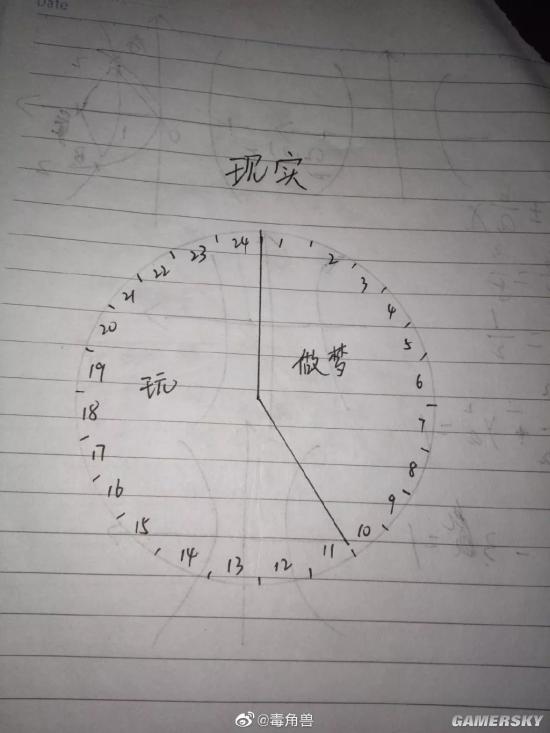 Date
现实
24 1 2 3 4 5 6 7 8 9 10 11 12 13 14 15 16 17 18 19 20 21 22 23
做梦
玩
@毒角兽
GAMERSKY